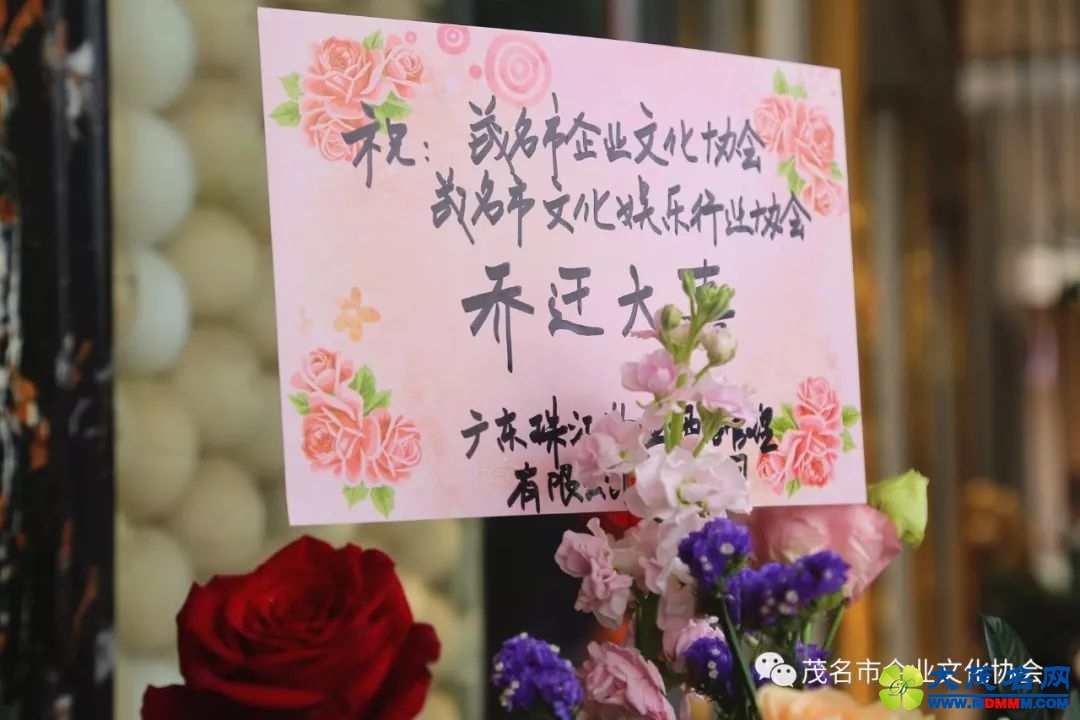 祝：茂名市企业文化协会
茂名市文化娱乐行业协会
乔迁大喜
广东珠江
有限
茂名市企业文化协会
大茂名网
WWW.MDMMM.COM